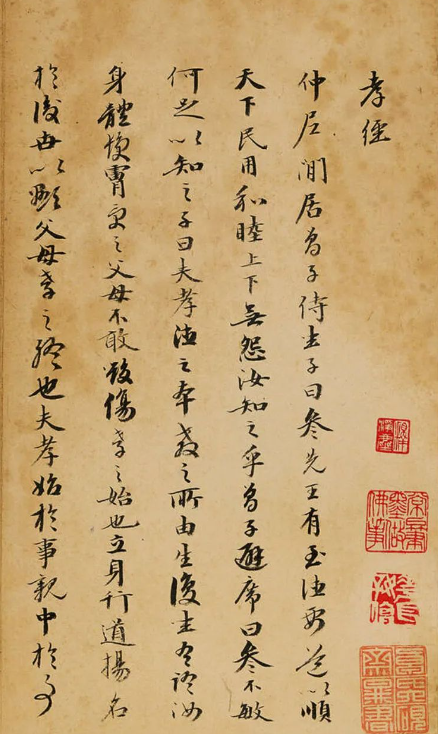 孝經
仲尼閒居曾子侍坐子曰參先王有至德要道以順
天下民用和睦上下無怨汝知之乎曾子避席曰參不敏
何足以知之子曰夫孝德之本教之所由生復坐吾語汝
身體髮膚受之父母不敢毀傷孝之始也立身行道揚名
於後世以顯父母孝之終也夫孝始於事親中於事